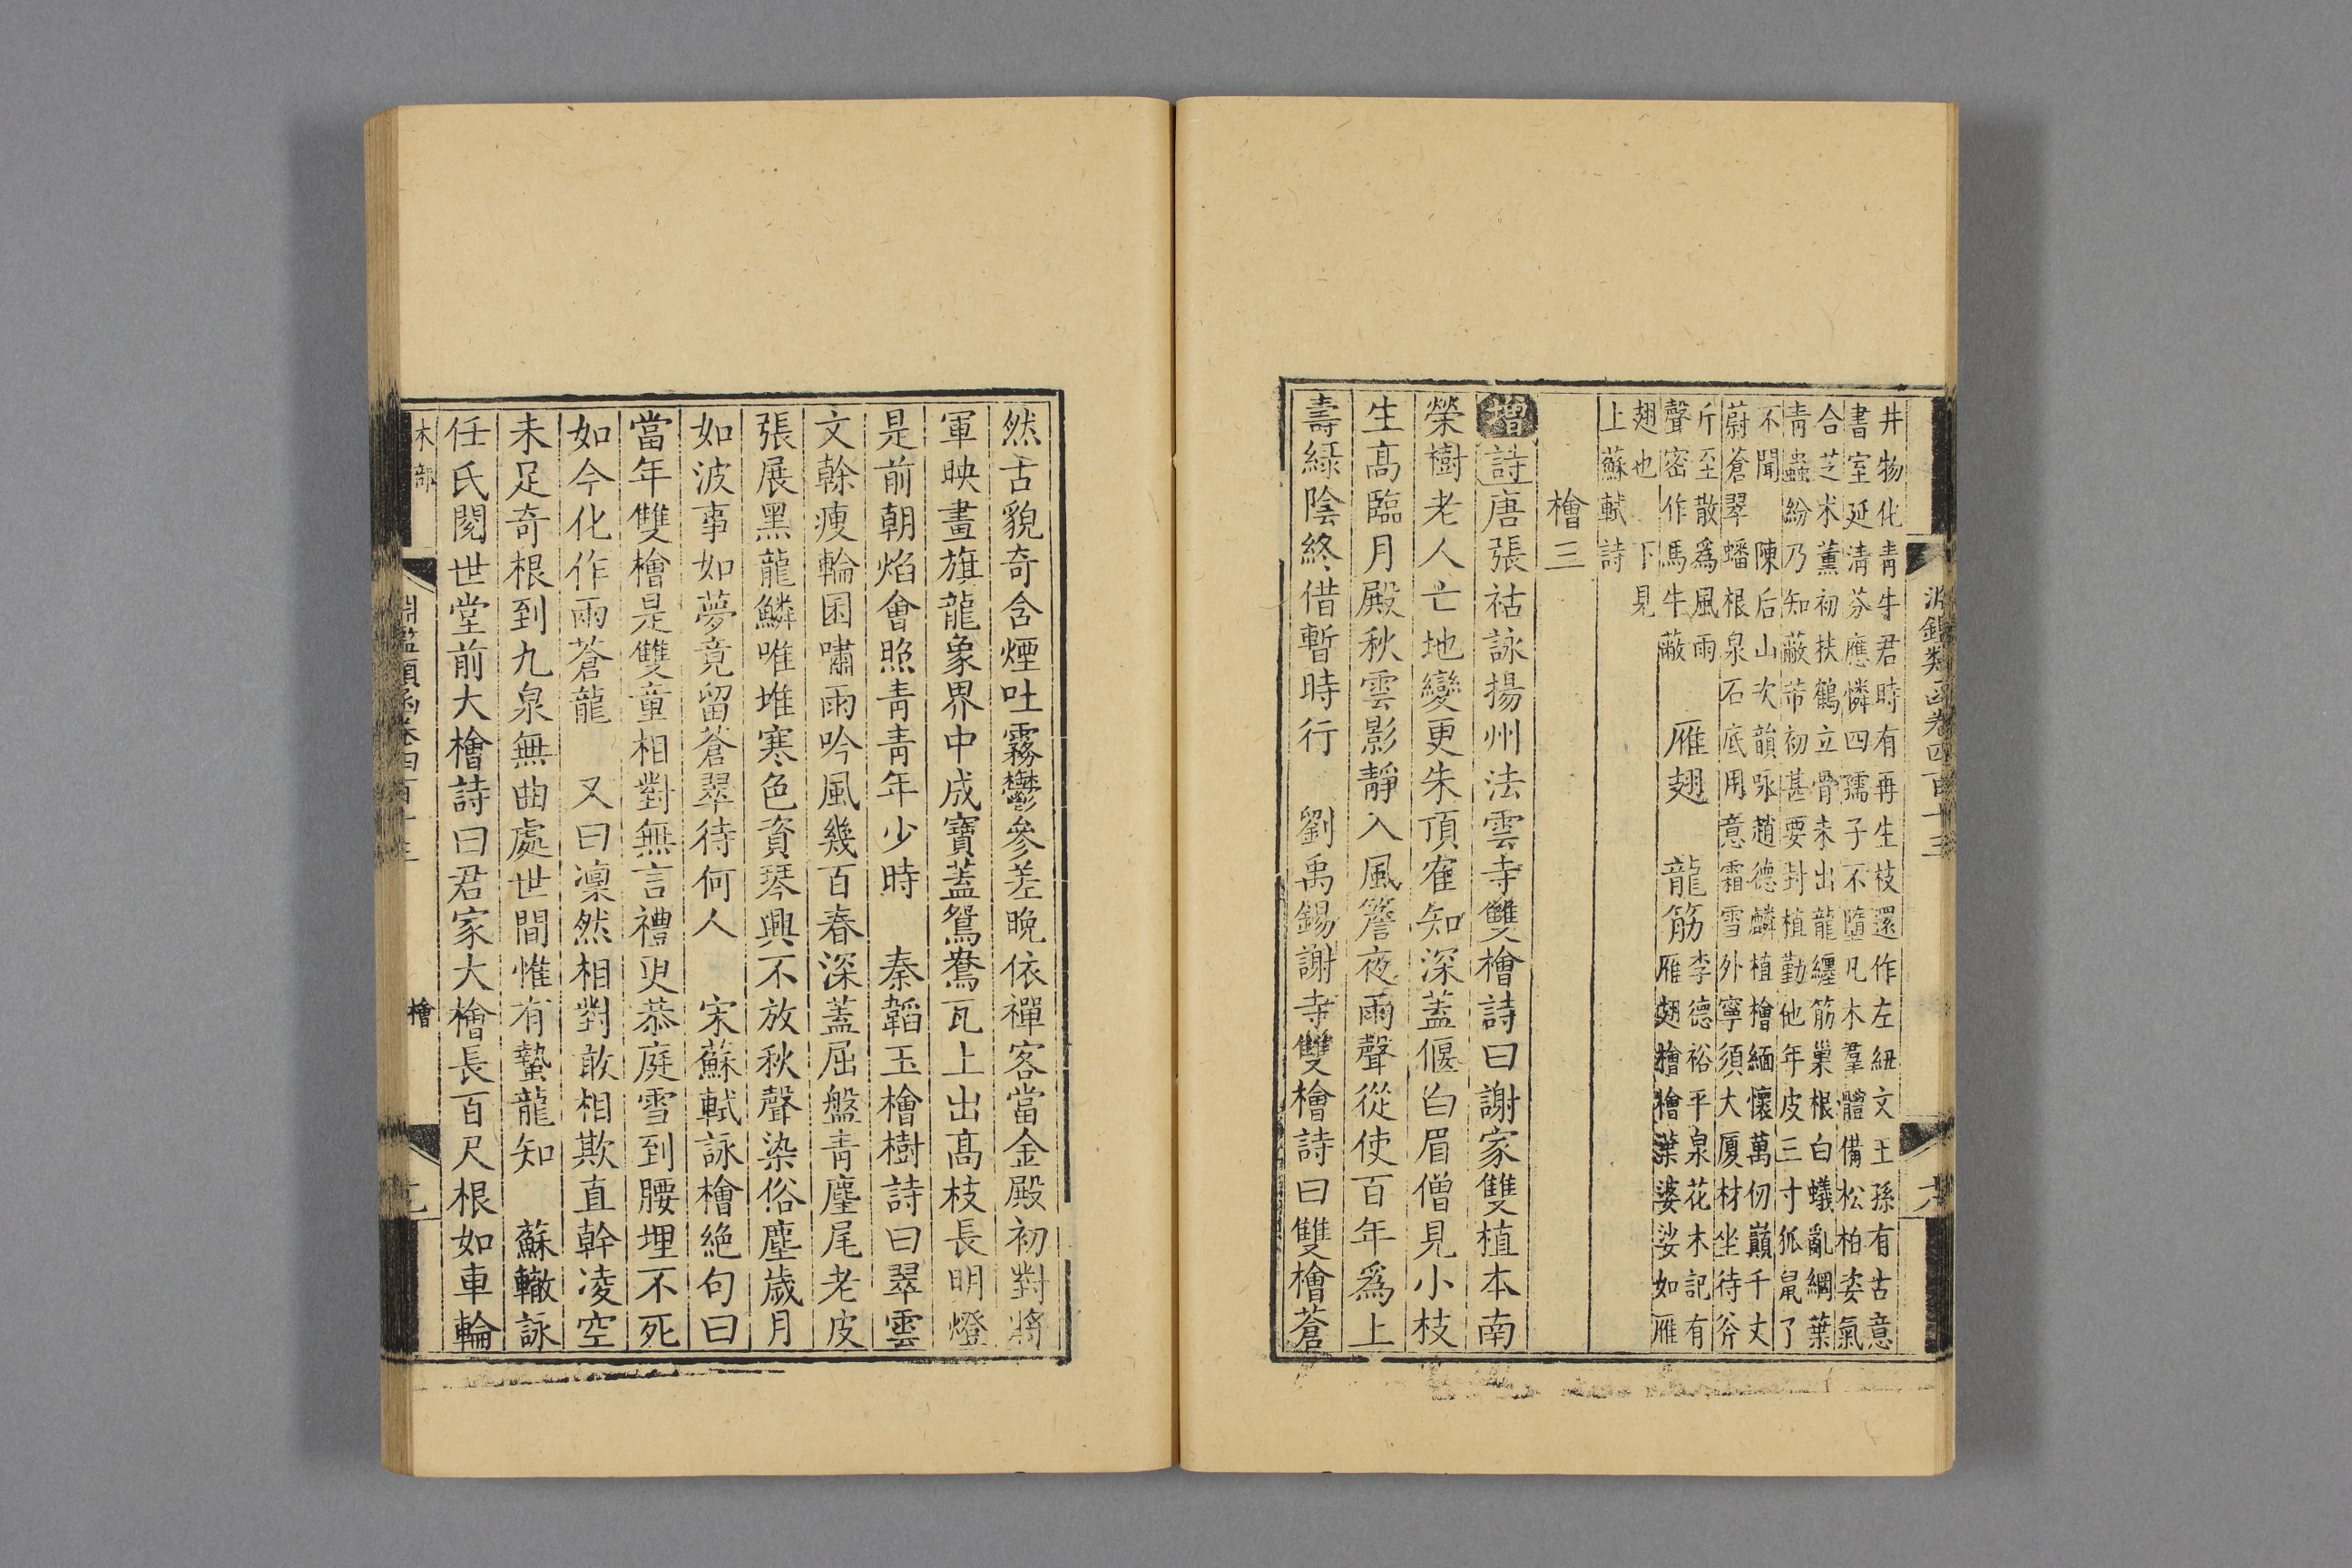 淵鑑類函卷四百十三
井物化靑牛君時有再生枝還作左紐文王孫有古意
書室延淸芬應憐四孺子不墮凡木羣體備松柏姿氣
合芝朮薰初扶鶴立骨未出龍纏筋巢根白蟻亂綱葉
靑蟲紛乃知蔽芾初甚要封植勤他年皮三寸狐鼠了
不聞 陳后山次韻咏趙德麟植檜緬懷萬仞巔千丈
蔚蒼翠蟠根泉石底用意霜雪外寧須大厦材坐待斧
斤至散爲風雨
聲密作馬牛蔽
雁翅
龍筋
李德裕平泉花木記有
雁翅檜檜葉婆娑如雁
翅也 下見
上蘇軾詩
檜三
增詩唐張祜詠揚州法雲寺雙檜詩曰謝家雙植本南
榮樹老人亡地變更朱頂寉知深蓋偃白眉僧見小枝
生高臨月殿秋雲影靜入風簷夜雨聲從使百年爲上
壽綠陰終借暫時行 劉禹錫謝寺雙檜詩曰雙檜蒼
然古貌奇含煙吐霧鬱參差晚依禪客當金殿初對將
軍映畫旗龍象界中成寶蓋鴛鴦瓦上出高枝長明燈
是前朝焰會照青青年少時 秦韜玉檜樹詩曰翠雲
文幹瘦輪囷嘯雨吟風幾百春深蓋屈盤青麈尾老皮
張展黑龍鱗唯堆寒色資琴興不放秋聲染俗塵歲月
如波事如夢竟留蒼翠待何人 宋蘇軾詠檜絶句曰
當年雙檜是雙童相對無言禮更恭庭雪到腰埋不死
如今化作雨蒼龍 又曰凜然相對敢相欺直幹凌空
未足奇根到九泉無曲處世間惟有蟄龍知 蘇轍詠
任氏閱世堂前大檜詩曰君家大檜長百尺根如車輪
木部
淵鑑類函卷四百十三
檜